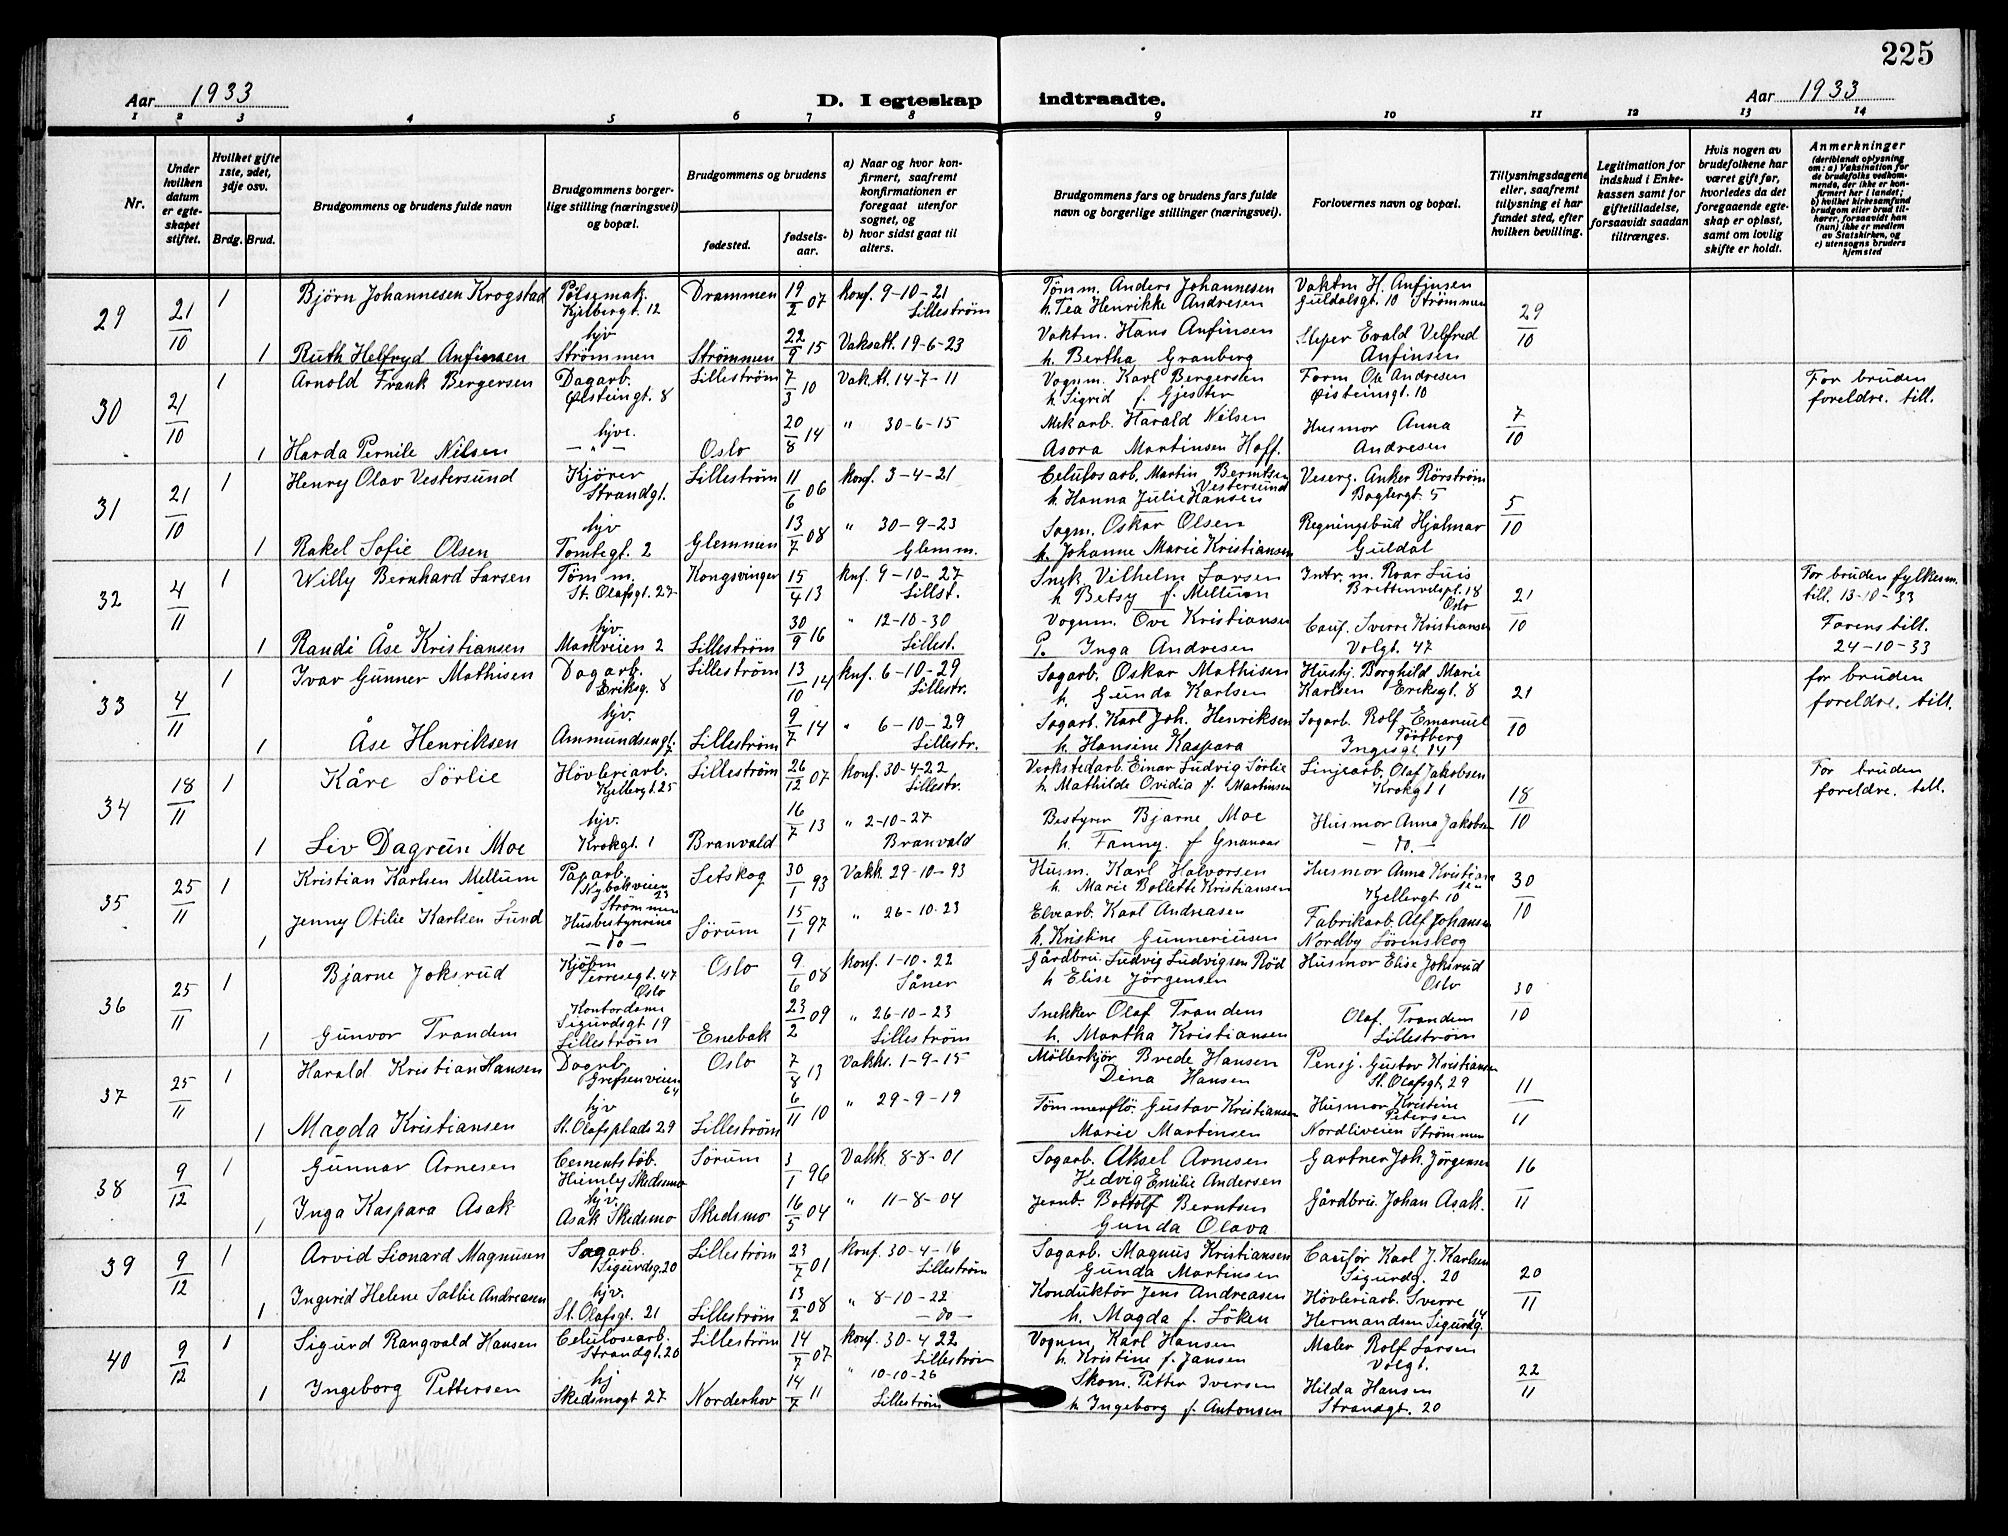 225
Aar 1933
D. I egteskap indtraadte.
Aar 1933
1 2 3 4 5 6 7 8 9 10 11 12 13 14
Nr.
Under hvilken datum er egteskapet stiftet.
Hvilket gifte 1ste, 2det, 3dje osv.
Brdg. Brud.
Brudgommens og brudens fulde navn
Brudgommens borgerlige stilling (næringsvei) og bopæl.
Brudgommens og brudens
fødested.
fødselsaar.
a) Naar og hvor konfirmert, saafremt konfirmationen er foregaat utenfor sognet, og
b) hvor sidst gaat til alters.
Brudgommens fars og brudens fars fulde navn og borgerlige stillinger (næringsvei).
Forlovernes navn og bopæl.
Tillysningsdagene eller, saafremt tillysning ei har fundet sted, efter hvilken bevilling.
Legitimation for indskud i Enkekassen samt for giftetilladelse, forsaavidt saadan tiltrænges.
Hvis nogen av brudefolkene har været gift før, hvorledes da det foregaaende egteskap er opløst, samt om lovlig skifte er holdt.
Anmerkninger
(deriblandt oplysning om: a) Vaksination for de brudefolks vedkommende, der ikke er konfirmert her i landet; b) hvilket kirkesamfund brudgom eller brud tilhører, forsaavidt han (hun) ikke er medlem av Statskirken, og c) utensogns bruders hjemsted
29 21/10 1 Bjørn Johannesen Krogstad Pølsemak. Kjelbergt. 12 Drammen 19/2 07 konf. 9-10-21 Lilleström Tømm. Anders Johannesen h. Tea Henrikke Andresen Vaktm H. Anfinsen Guldalsgt. 10 Strömmen 29/10
1 Ruth Helfryd Anfinsen hjv Strömmen Strömmen 22/9 15 Vaksatt. 19-6-23 Vaktm. Hans Anfinsen h. Bertha Granberg Evald Velfred Anfinsen
30 21/10 1 Arnold Frank Bergersen Dagarb. Øisteingt. 8 Lilleström 7/3 10 Vak.tt. 14-7-11 Vognm. Karl Bergersen h Sigrid f. Gjester Form Ole Andresen Øisteinsgt. 10 7/10 For bruden foreldre. till.
1 Harda Pernile Nilsen hjve. - " - Oslo 20/8 14 " 30-6-15 Mek arb. Harald Nilsen Asora Martinsen Hoff. Husmor Anna Andresen
31 21/10 1 Henry Olav Vestersund Kjörer Strandgt. Lilleström 11/6 06 konf. 3-4-21 Celulosarb. Martin Berntsen Vestersund h. Hanna Julie Hansen Veserg. Anker Rörström Boglergt. 5 5/10
1 Rakel Sofie Olsen hjv Tomtegt. 2 Glemmen 13/7 08 " 30-9-23 Glemm. Sagm. Oskar Olsen h. Johanne Marie Kristiansen Regningsbud Hjalmar Guldal
32 4/11 1 Willy Bernhard Larsen Tömm. St. Olafsgt. 27 Kongsvinger 15/4 13 knf. 9-10-27 Lillst. Snek. Vilhelm Larsen h Betsy f. Mellum Intr. m. Roar Luis Oslo 21/10 For bruden fylkesm. till. 13-10-33
1 Randi Åse Kristiansen hjv. Markveien 2 Lilleström 30/9 16 " 12-10-30 Lillest. Vognm. Ove Kristiansen P. Inga Andresen Cauf. Sverre Kristiansen Volgt. 47 Farens till. 24-10-33
33 4/11 1 Ivar Gunner Mathisen Dagarb. Eriksg. 8 Lilleström 13/10 14 knf. 6-10-29 Lillestr. Sagarb. Oskar Mathisen h. Gunda Karlsen Hushj. Borghild Marie Karlsen Eriksgt. 8 21/10 for bruden foreldre. till.
1 Åse Henriksen hjv. Ammundsengt. 7 Lilleström 9/7 14 " 6-10-29 Lillestr. Sagarb. Karl Joh. Henriksen h. Hansine Kaspara Sagarb. Rolf Emanuel Torsberg Ingesgt. 14
34 18/11 1 Kåre Sörlie Hövleriarb. Kjellergt. 25 Lilleström 26/12 07 konf. 30-4-22 Lillestr. Verkstedarb. Einar Ludvig Sörlie h. Mathilde Ovidia f. Martinsen Linjearb. Olaf Jakobsen Krokgt 1 18/10 For bruden foreldre. till.
1 Liv Dagrun Moe hjv. Krokgt. 1 Branvald 16/7 13 " 2-10-27 Branvald Bestyrer Bjarne Moe h. Fanny. f Husmor Anna Jakobsen - do. -
35 25/11 1 Kristian Karlsen Mellum Paparb. Nybakveien 23 Strömmen Setskog 30/1 93 Vakk. 29-10-93 Husm. Karl Halvorsen h. Marie Bollette Kristiansen Husmor Anna Kristiansen Kjellergt 10 30/10
1 Jenny Otilie Karlsen Lund Husbestyrerine - do - Sörum 15/1 97 " 26-10-23 Elvearb. Karl Andreasen h. Kristine Gunneriusen Fabrikarb. Alf Johansen Nordby Lörenskog
36 25/11 1 Bjarne Joksrud Kjöbm Verresegt. 47 Oslo Oslo 9/6 08 konf. 1-10-22 Såner Gårdbru. Ludvig Ludvigsen Röd h Elise Jörgensen Husmor Elise Joksrud Oslo 30/10
1 Gunvor Trandem Kontordame Sigurdsgt 19 Lilleström Enebak 23/2 09 " 26-10-23 Lilleström Snekker Olaf Trandem h. Martha Kristiansen Olaf. Trandem Lilleström
37 25/11 1 Harald Kristian Hansen Dagarb Grefsenveien 64 Oslo 7/8 13 Vakks. 1-9-15 Möllerkjör Brede Hansen Dina Hansen Pensj. Gustav Kristiansen St. Olafsgt. 29 11/11
1 Magda Kristiansen hjv St. Olafsplads 29 Lilleström 6/11 10 " 29-9-19 Tömmerflö. Gustav Kristiansen Marie Martinsen Husmor Kristine Petersen Nordliveien Strömmen
38 9/12 1 Gunnar Arnesen Cementstöb. Himly Skedsmo Sörum 3/1 96 Vakk. 8-8-01 Sagarb. Aksel Arnesen Hedvig Emilie Andersen Gartner Joh. Jörgensen 16/11
1 Inga Kaspara Asak hjv. Asak Skedsmo Skedsmo 16/5 04 " 11-8-04 Jernb. Bottolf Berntsen Gunda Olava Gårdbru. Johan Asak.
39 9/12 1 Arvid Lionard Magnusen Sagarb. Sigurdsg. 20 Lilleström 23/7 01 konf. 30-4-16 Lilleström Sagarb. Magnus Kristiansen Gunda Martinsen Caufør Karl J. Karlsen Sigurdg. 20 20/11
1 Ingerid Helene Sallie Andreasen hjv. St. Olafsgt. 21 Lilleström 13/2 08 " 8-10-22 - do - Konduktör Jens Andreasen h. Magda f. Löken Hövleriarb. Sverre Hermandsen Sigurdg. 14
40 9/12 1 Sigurd Rangvald Hansen Celulosearb. Strandgt. 20 Lilleström 14/7 07 konf. 30-4 22 Lilleström Vognm. Karl Hansen h. Kristine f. Jansen Maler Rolf Larsen Volgt. 22/11
1 Ingeborg Pettersen hj Skedsmogt 27 Norderhov 14/7 11 " 10-10-26 Lilleström Skom. Petter Iversen h Ingeborg f. Antonsen Hilda Hansen Strandgt. 20